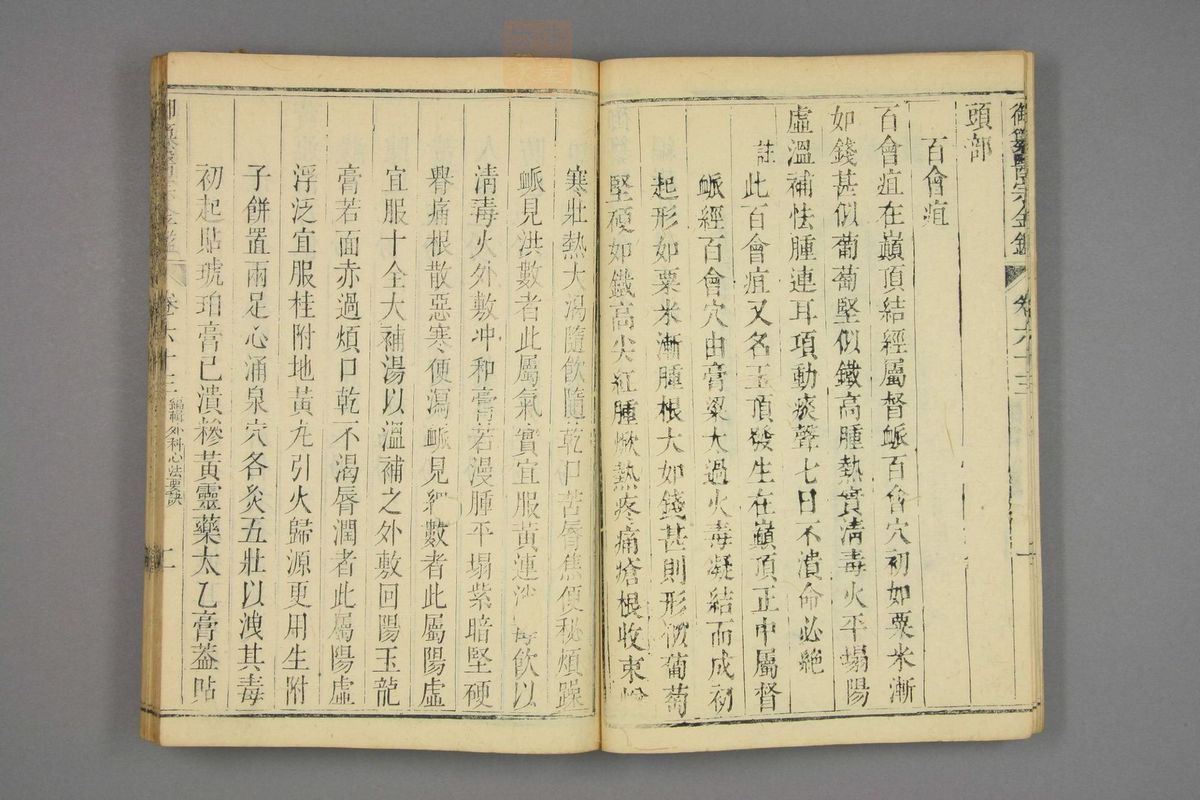 御纂醫宗金鑑 卷六十三 一
頭部
百會疽
百會疽在巔頂結經屬督脈百會穴初如粟米漸
如錢甚似葡萄堅似鐵高腫熱實清毒火平塌陽
虛溫補怯腫連耳項動痰聲七日不潰命必絕
註此百會疽又名玉頂發生在巔頂正中屬督
脈經百會穴由膏粱太過火毒凝結而成初
起形如粟米漸腫根大如錢甚則形似葡萄
堅硬如鐵高尖紅腫焮熱疼痛瘡根收束
寒壯熱大渴隨飲隨乾口苦唇焦便秘煩躁
脈見洪數者此屬氣實宜服黃連 飲以
清毒火外敷冲和膏若漫腫平塌紫暗堅硬
㿍痛根散惡寒便瀉脈見細數者此屬陽虛
宜服十全大補湯以溫補之外敷回陽玉龍
膏若面赤過煩口乾不渴唇潤者此屬陽虛
浮泛宜服桂附地黃丸引火歸源更用生附
子餅置兩足心涌泉穴各灸五壯以洩其毒
初起貼琥珀膏已潰摻黃靈藥太乙膏蓋貼
卷六十三 編輯外科心法要訣 二